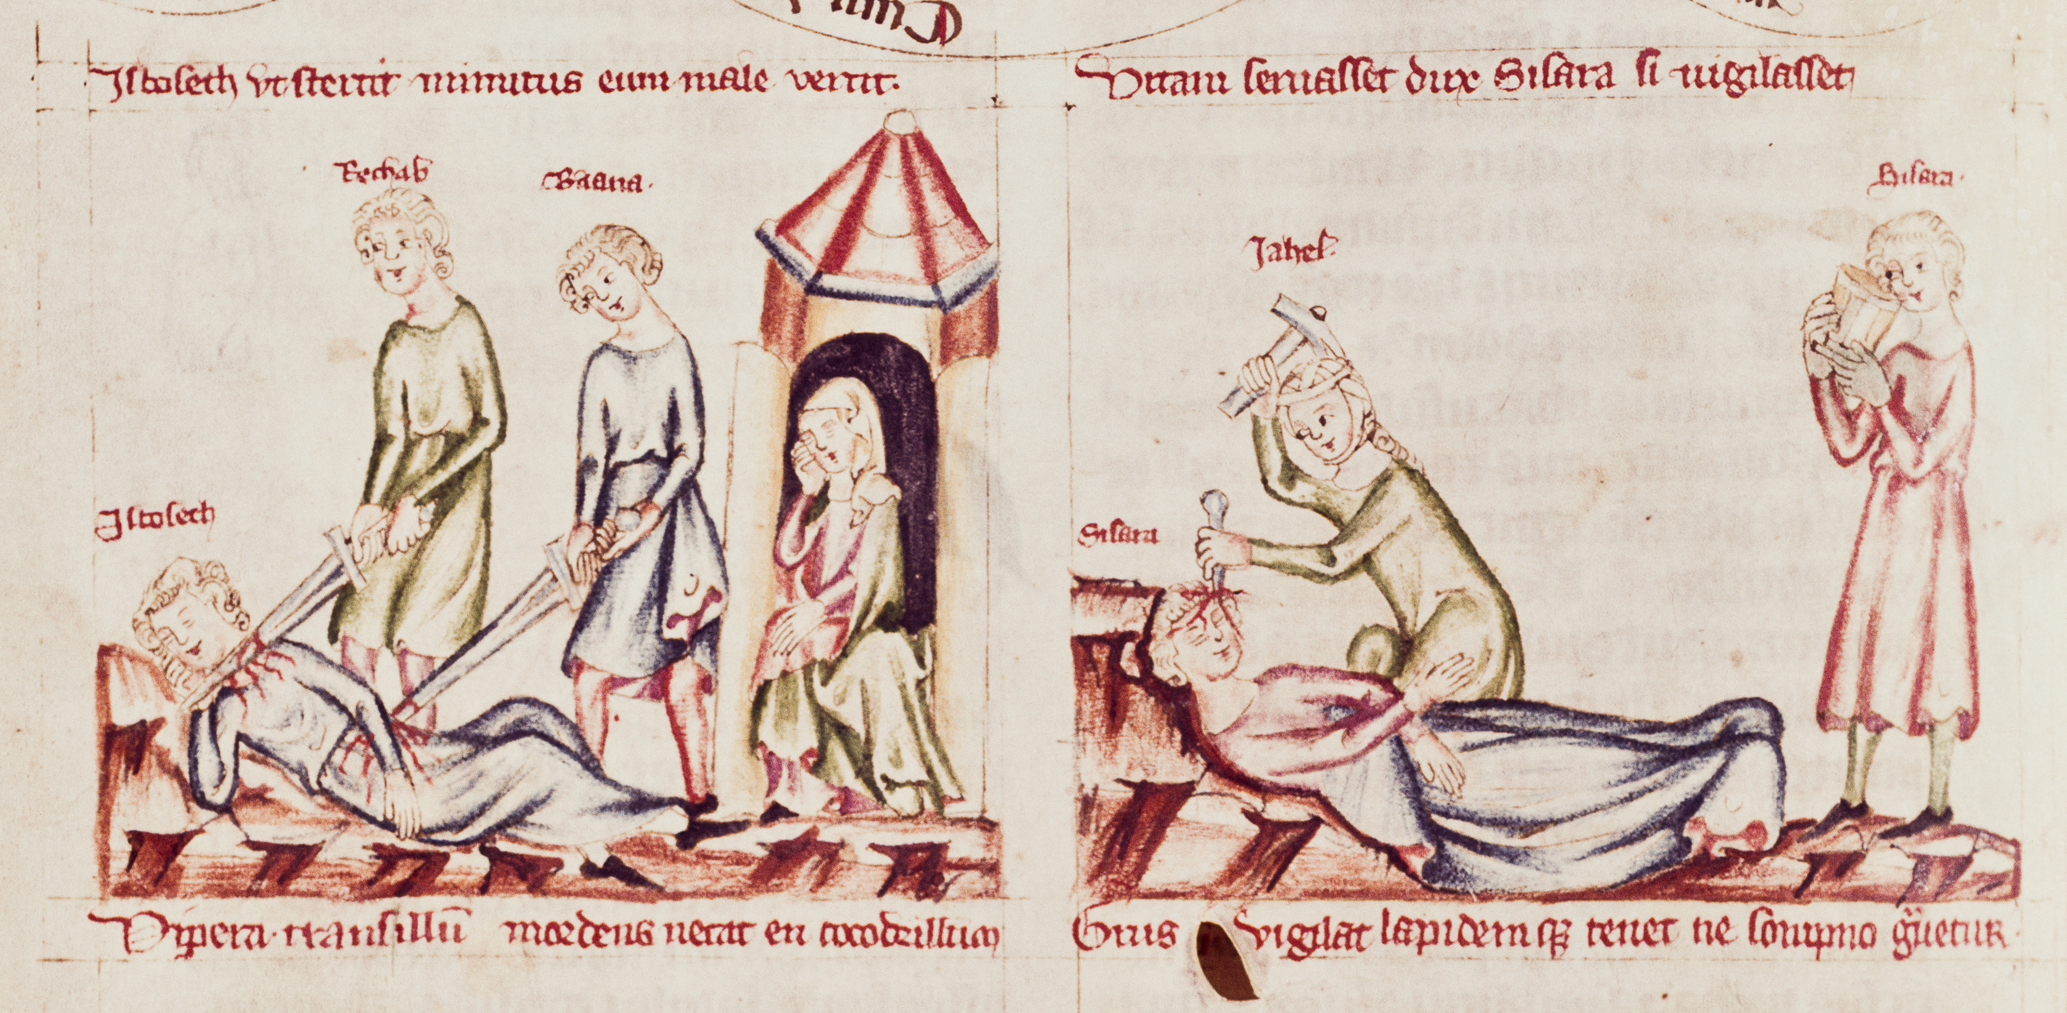 Cum
Isboseth ut stertit minutus eum male vertit.
Vitam servasset dux Sisara si vigilasset
Rechab
Baana.
Sisara.
Jahel.
Isboseth
Sisara
Vipera transillū mordens necat en cocodrillum
Grus vigilat lapidem tenet ne sompno